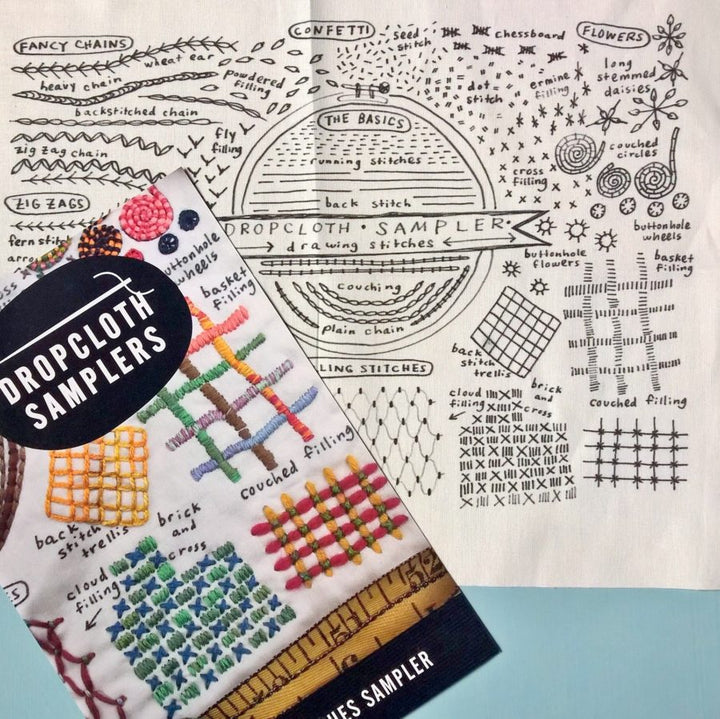 FANCY CHAINS
wheat ear
heavy chain
backstitched chain
zig zag chain
ZIG ZAGS
fern
powdered
filling
fly
filling
CONFETTI
seed
stitch
chessboard
dot
stitch
ermine
filling
cross
filling
FLOWERS
long
stemmed
daisies
couched
circles
buttonhole
wheels
buttonhole
flowers
basket
filling
THE BASICS
running stitches
back stitch
DROPCLOTH · SAMPLER
drawing stitches
couching
plain chain
STITCHES
back
stitch
trellis
cloud
filling
brick
and
cross
couched filling
buttonhole
wheels
basket
filling
DROPCLOTH
SAMPLERS
couched filling
back
stitch
trellis
brick
and
cross
cloud
filling
SAMPLER